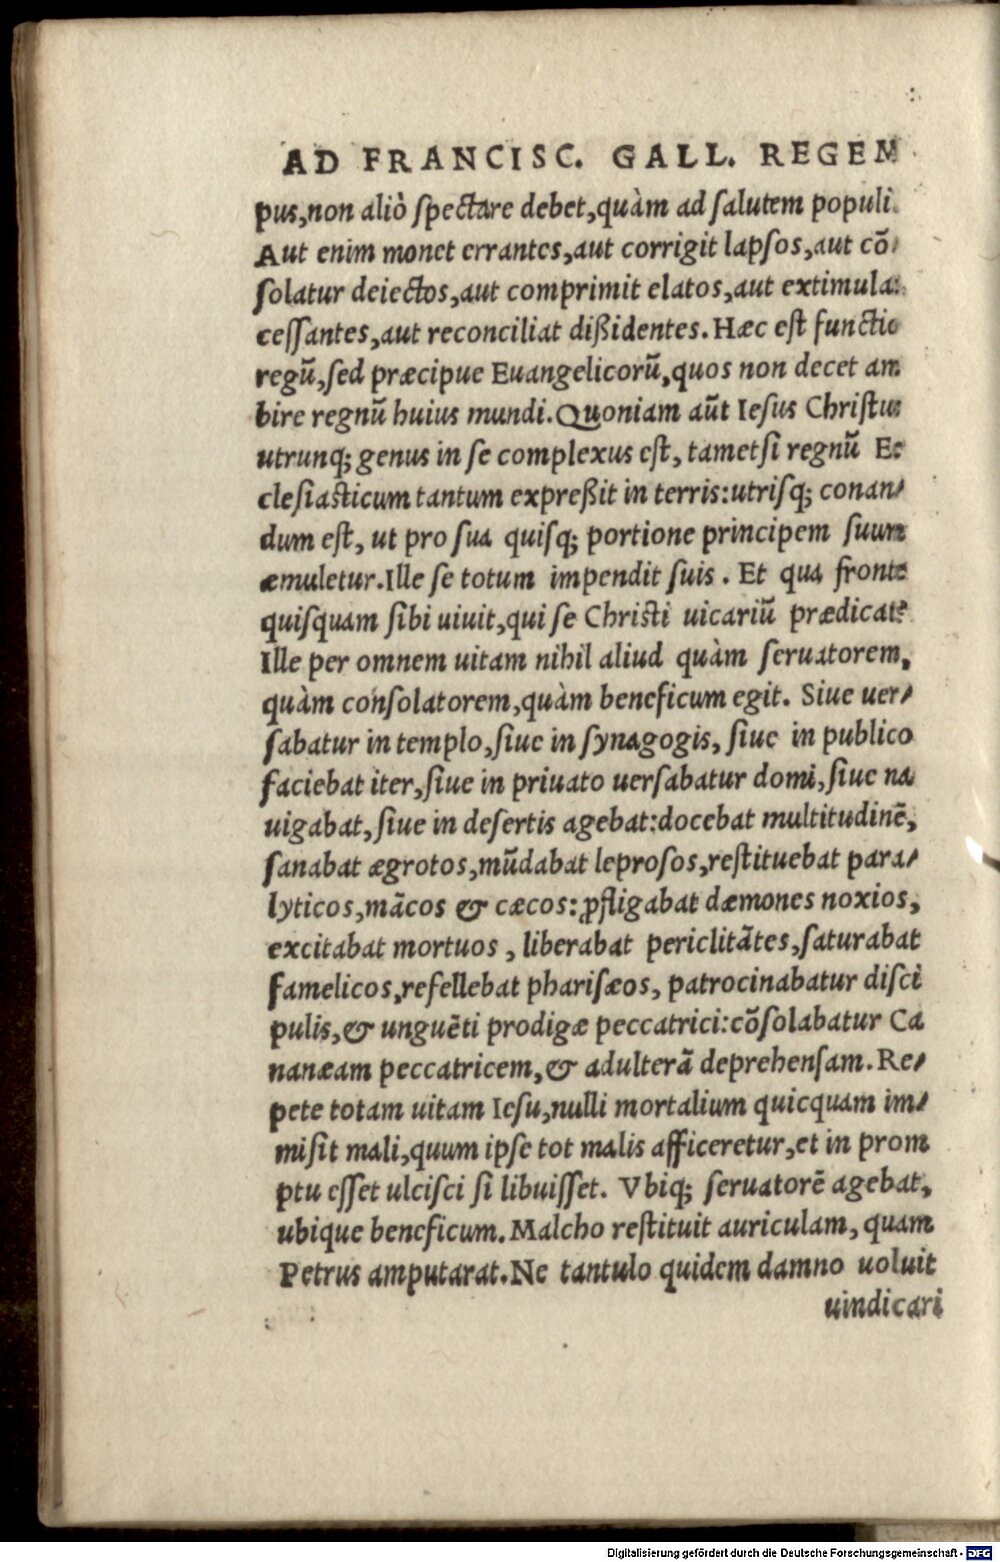 AD FRANCISC. GALL. REGEM
pus,non aliò ſpectare debet,quàm ad ſalutem populi.
Aut enim monet errantes,aut corrigit lapſos,aut cõ⸗
ſolatur deiectos,aut comprimit elatos,aut extimulat
ceſſantes,aut reconciliat dißidentes. Hæc eſt functio
regũ,ſed præcipue Euangelicorũ,quos non decet am
bire regnũ huius mundi. Quoniam aũt Ieſus Chriſtus
utrunq; genus in ſe complexus eſt, tametſi regnũ Ec
cleſiaſticum tantum expreßit in terris:utriſq; conan⸗
dum eſt, ut pro ſua quiſq; portione principem ſuum
æmuletur. Ille ſe totum impendit ſuis. Et qua fronte
quiſquam ſibi uiuit,qui ſe Chriſti uicariũ prædicat?
Ille per omnem uitam nihil aliud quàm ſeruatorem,
quàm conſolatorem,quàm beneficum egit. Siue uer⸗
ſabatur in templo,ſiue in ſynagogis, ſiue in publico
faciebat iter,ſiue in priuato uerſabatur domi,ſiue na
uigabat,ſiue in deſertis agebat:docebat multitudinẽ,
ſanabat ægrotos,mũdabat leproſos,reſtituebat para⸗
lyticos,mãcos & cæcos:ꝓfligabat dæmones noxios,
excitabat mortuos, liberabat periclitãtes,ſaturabat
famelicos,refellebat phariſæos, patrocinabatur diſci
pulis,& unguẽti prodigæ peccatrici:cõſolabatur Ca
nanæam peccatricem,& adulterã deprehenſam. Re⸗
pete totam uitam Ieſu,nulli mortalium quicquam im⸗
miſit mali,quum ipſe tot malis afficeretur,et in prom
ptu eſſet ulciſci ſi libuiſſet. Vbiq; ſeruatorẽ agebat,
ubique beneficum. Malcho reſtituit auriculam, quam
Petrus amputarat. Ne tantulo quidem damno uoluit
uindicari
Digitalisierung gefördert durch die Deutsche Forschungsgemeinschaft - DFG